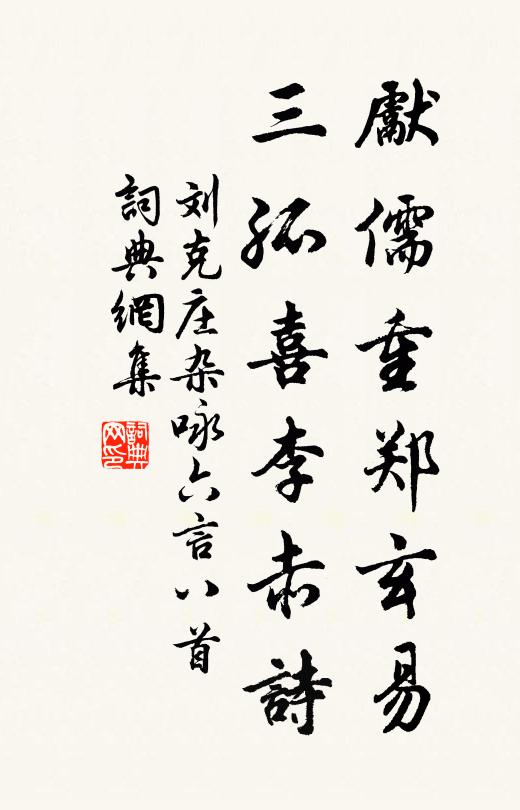 獻儒重郑玄易
三孤喜李赤詩
刘克庄杂咏六言八首
詞典網集
詞典网印